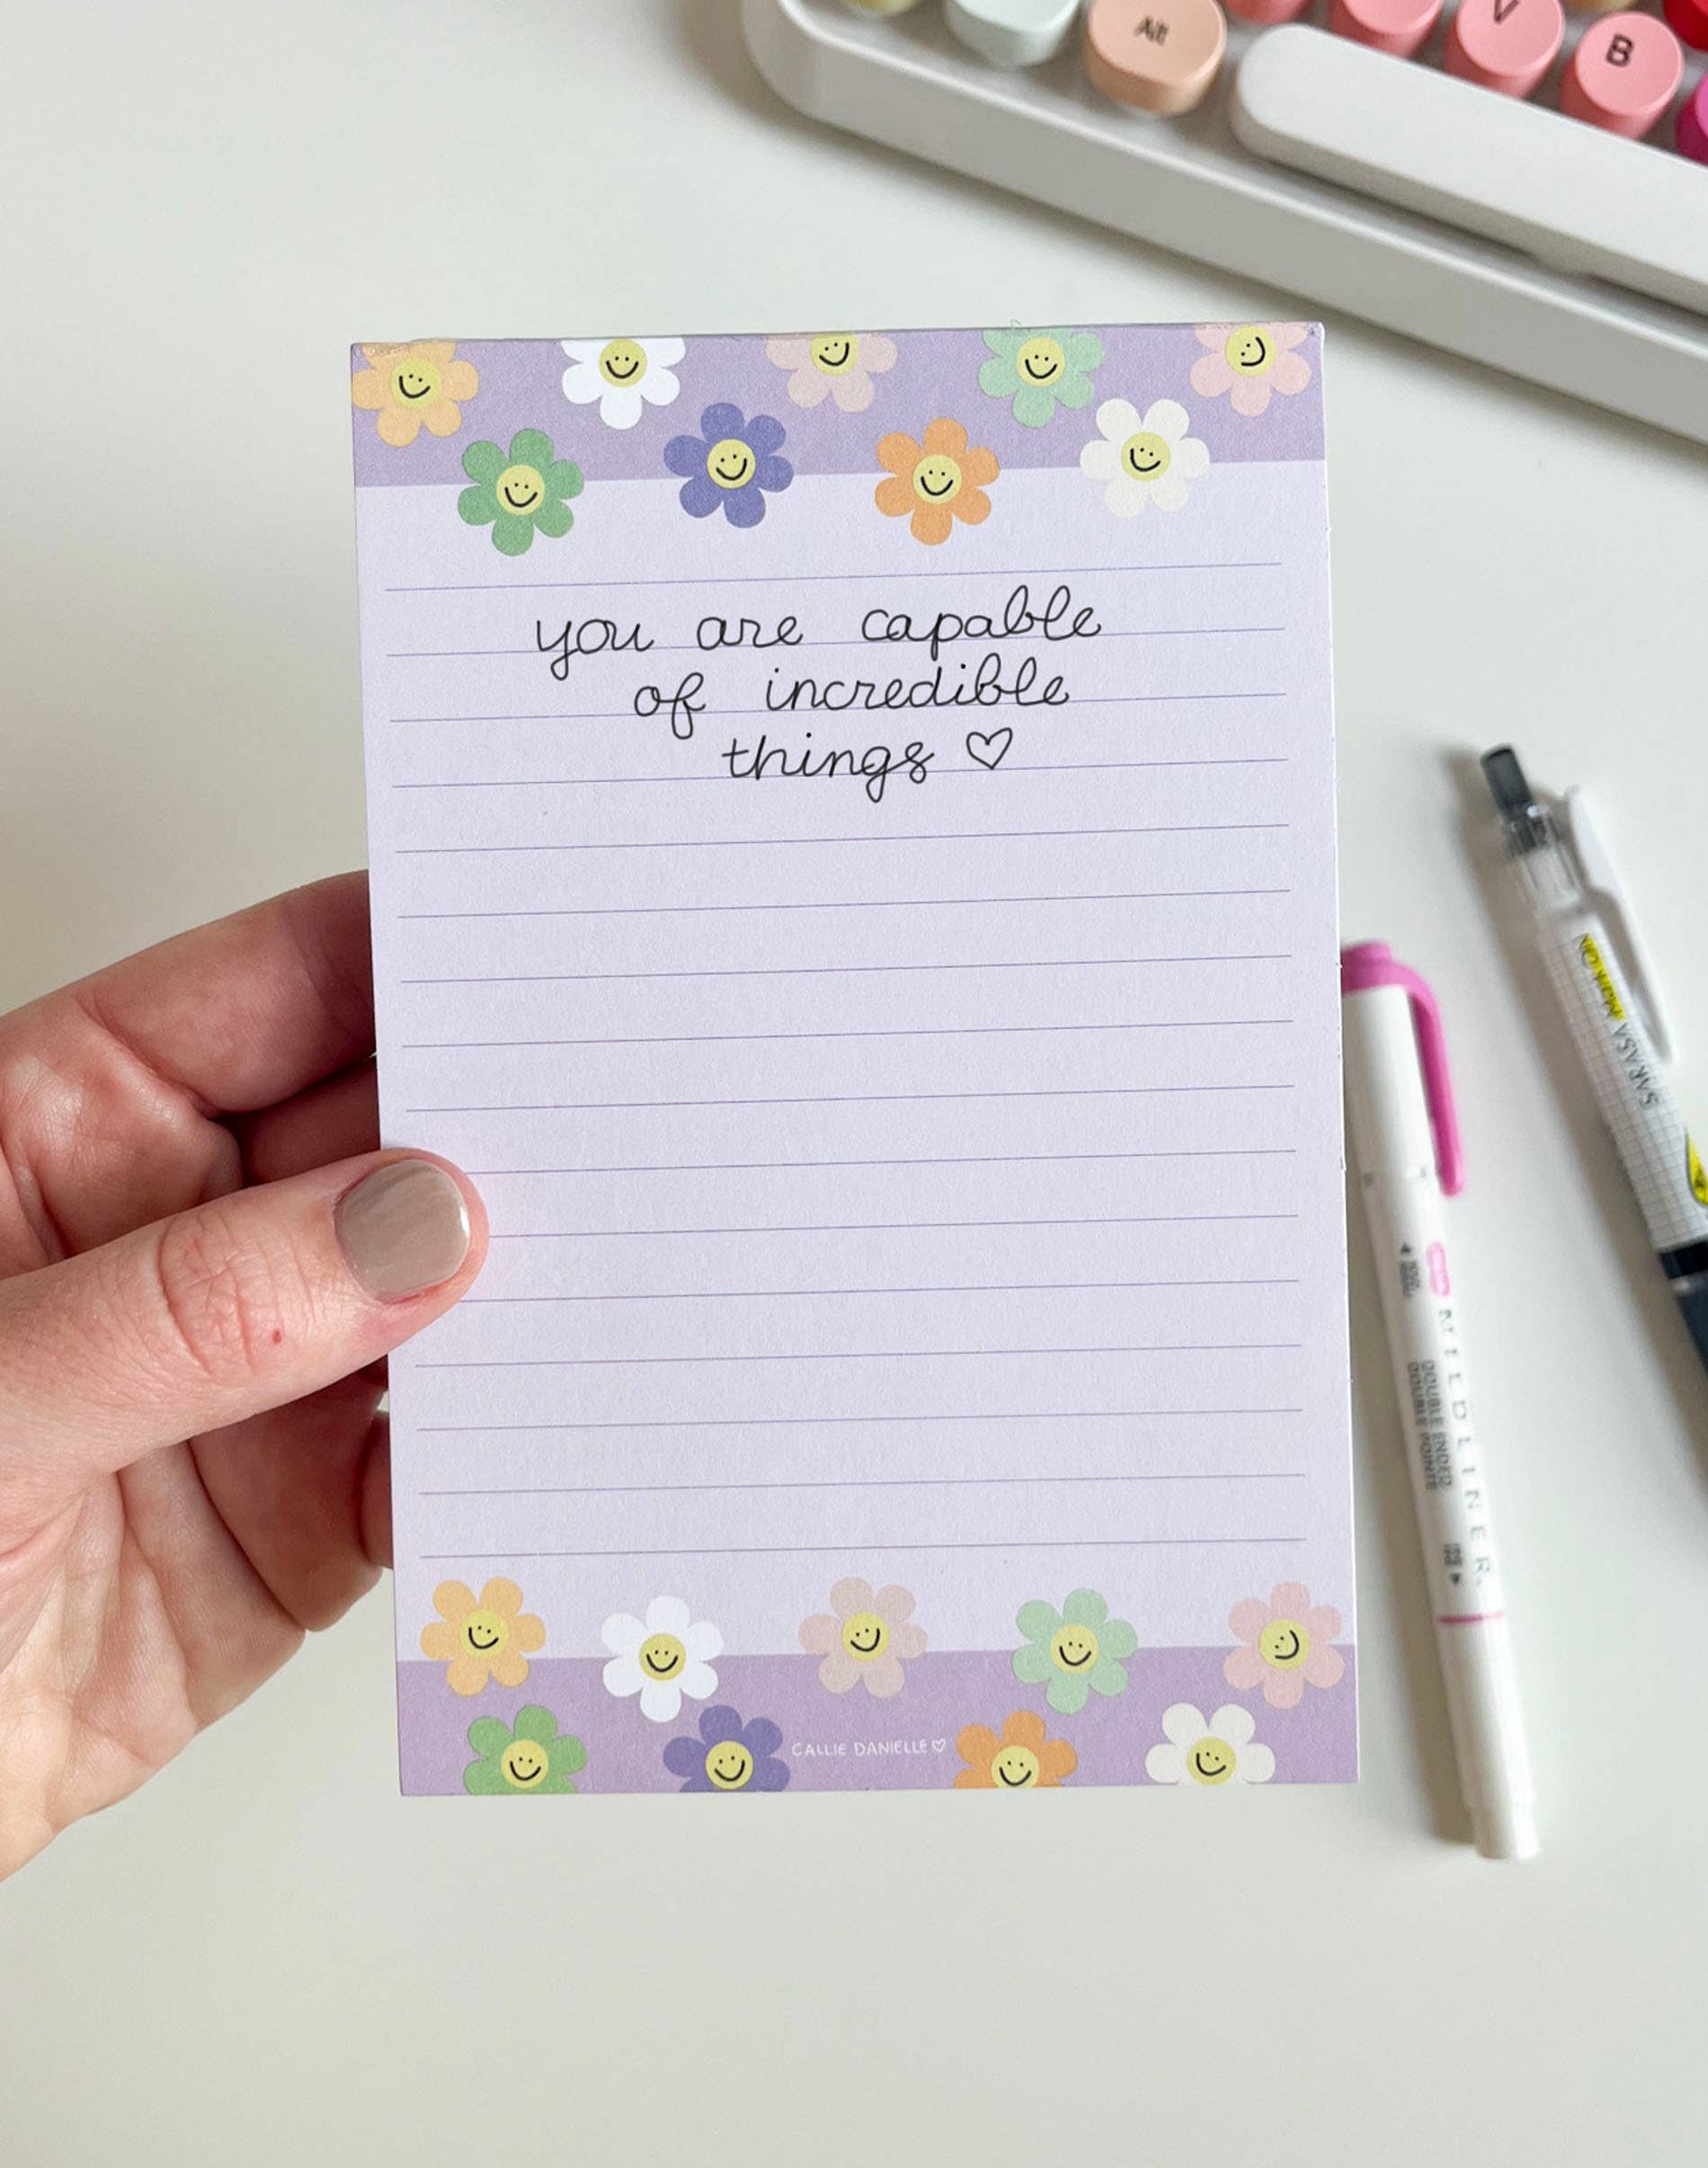 Alt
V
B
you are capable
of incredible
things ♡
CALLIE DANIELLE ♡
SARASA MARK ON
MILDLINER
DOUBLE ENDED
DOUBLE POINTE